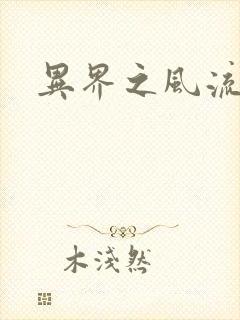 異界之風流
木淺然